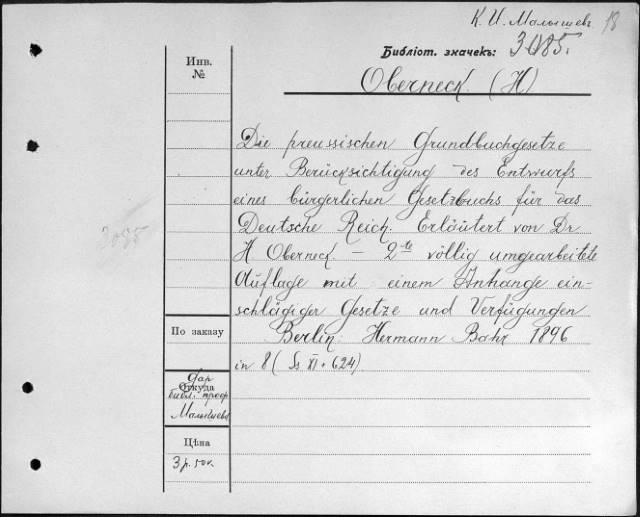 К. И. Малышев. 18
Библіот. значекъ: 3085.
Oberneck. (H)
Инв.
№
Die preussischen Grundbuchgesetze
unter Berücksichtigung des Entwurfs
eines bürgerlichen Gesetzbuchs für das
Deutsche Reich. Erläutert von Dr
H. Oberneck. – 2te völlig umgearbeitete
Auflage mit einem Anhange ein-
schlägiger Gesetze und Verfügungen
Berlin: Hermann Bahr 1896
in 8 (Ss XI + 624)
3085
По заказу
Откуда
Дар
библ. проф
Малышева
Цѣна
3 р. 50 к.